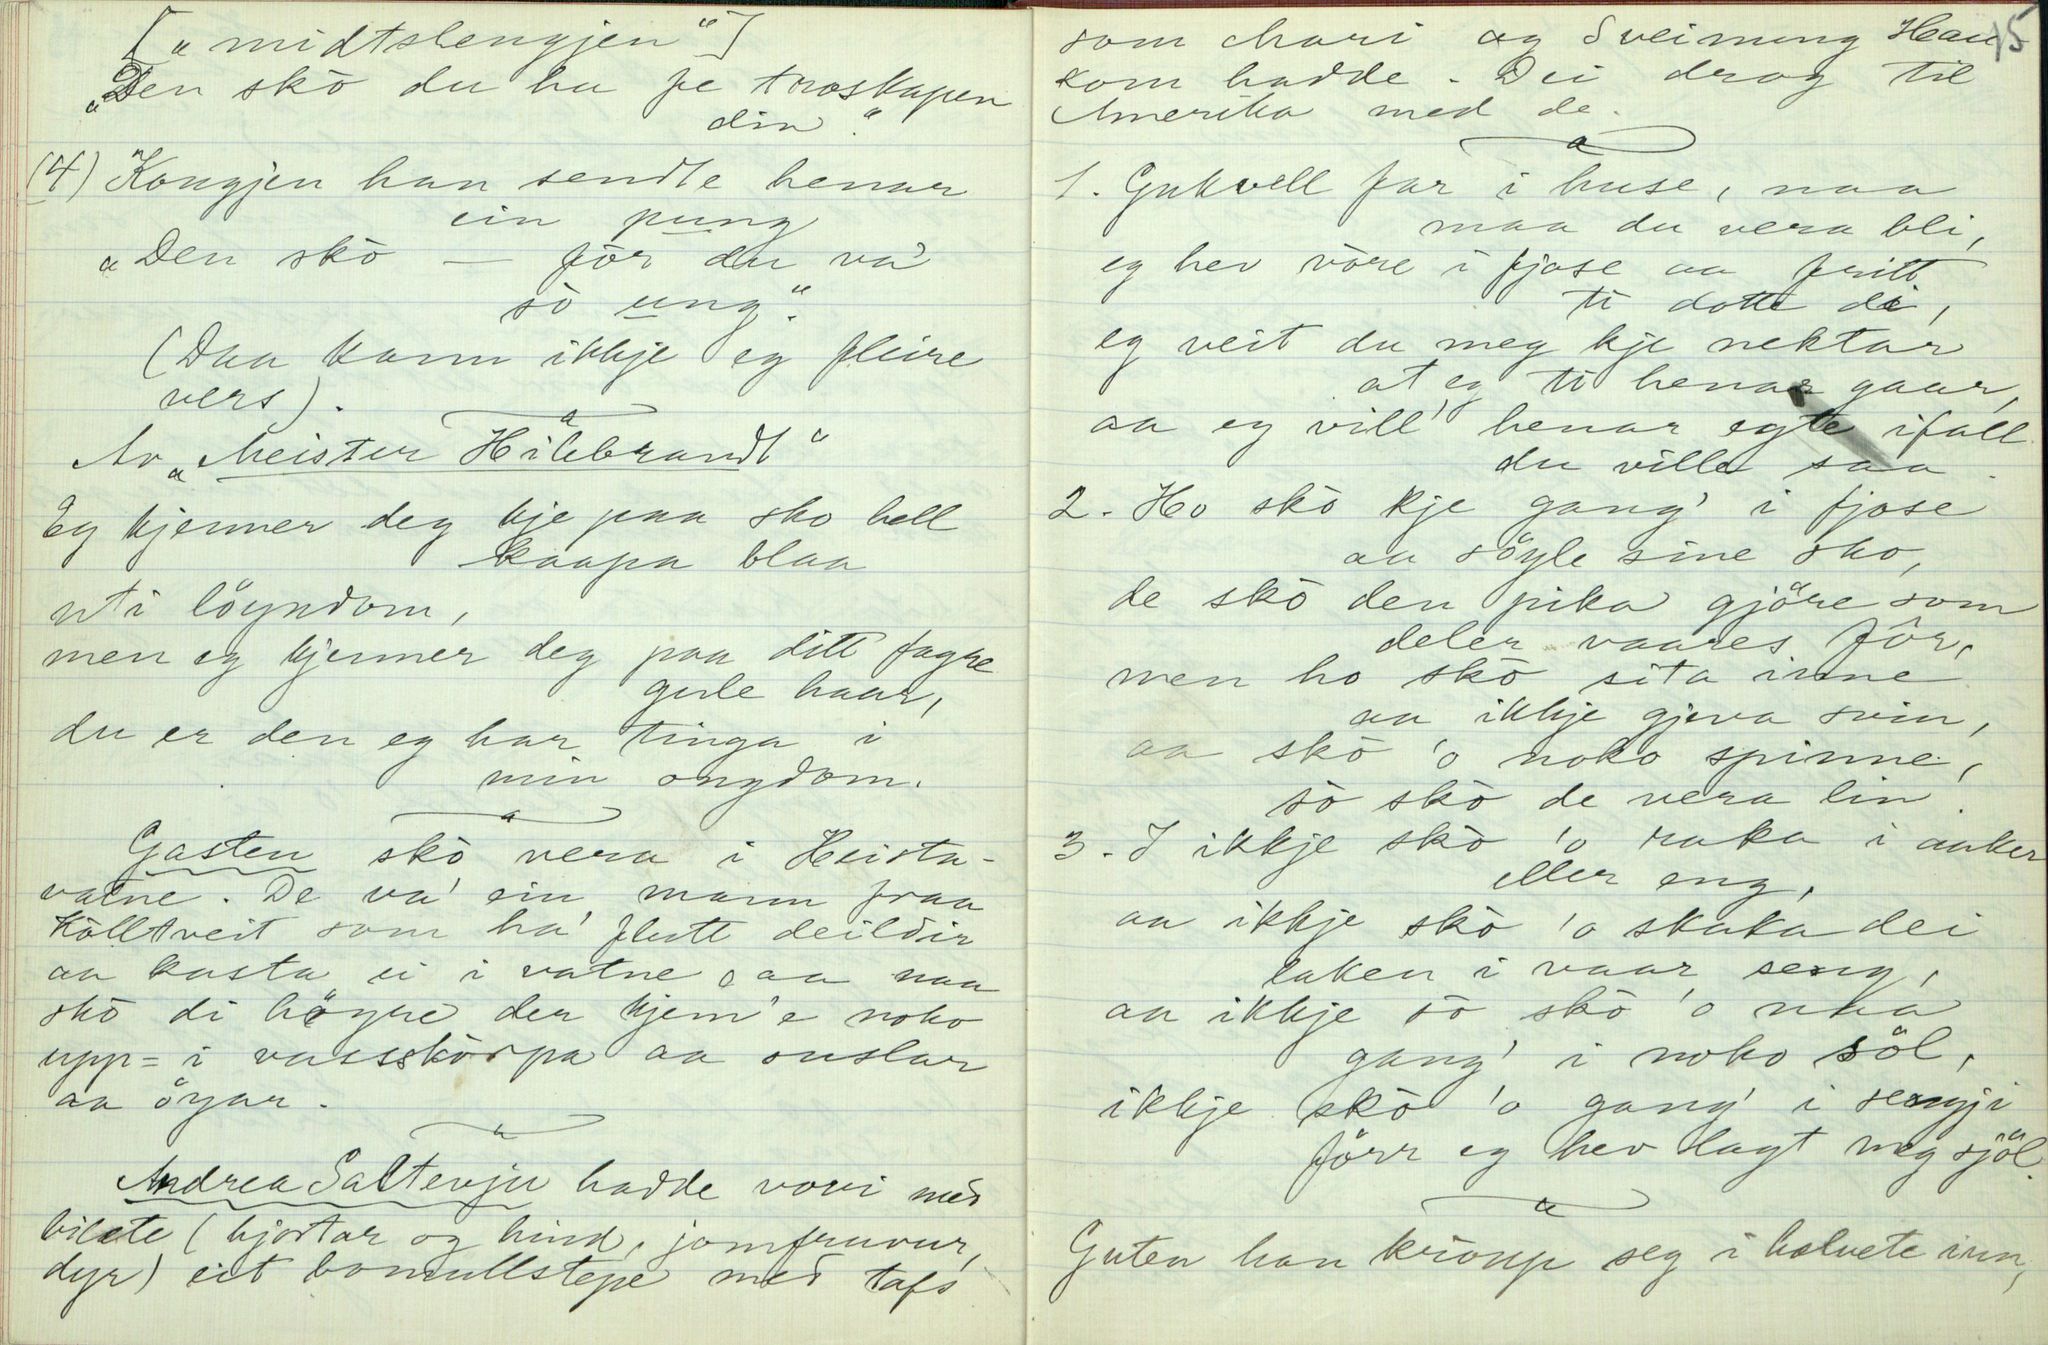 [„midtslengjen"]
„Den skò du ha fe troskapen
din."
(4) Kongjen han sendte henar
ein pung
„Den skò — för du va'
sò ung."
(Daa kann ikkje eg fleire
vers).
Av „Meister Hillebrandt"
Eg kjenner deg kje paa sko hell
kaapa blaa
uti löyndom,
men eg kjenner deg paa ditt fagre
gule haar,
du er den eg har tinga i
min ongdom.
Gasten skò vera i Heista-
vatne. De va' ein mann fraa
Kölltveit som ha' flutt deildir
aa kasta ei i vatne, aa naa
skò di högre der kjem'e noko
upp = i vassskorpa aa ouslar
aa öyar.
Andrea Saltevju hadde vovi med
bilete (hjortar og hind, jomfruvur,
dyr) eit bomullstepe med tafs
15
som Mari og Sveinung Hau
kom hadde. Dei drog til
Amerika med de.
1. Gukvell far i huse, naa
maa du vera bli,
eg hev vòre i fjose aa fritt
ti dotte di,
eg veit du meg kje nektar
at eg ti henar gaar,
aa eg vill' henar egte ifall
du ville saa.
2. Ho skò kje gang' i fjose
aa söyle sine sko,
de skò den pika gjöre som
deler vaares fôr,
men ho skò sita inne
aa ikkje gjeva svin,
aa skò 'o noko spinne,
sò skò de vera lin.
3. I ikkje skò 'o raka i aaker
eller eng,
aa ikkje skò 'o skaka dei
laken i vaar seng,
aa ikkje sò skò 'o naa
gang' i noko söl,
ikkje skò 'o gang' i sengji
förr eg hev lagt meg sjöl.
Guten han kroup seg i halvete inn,